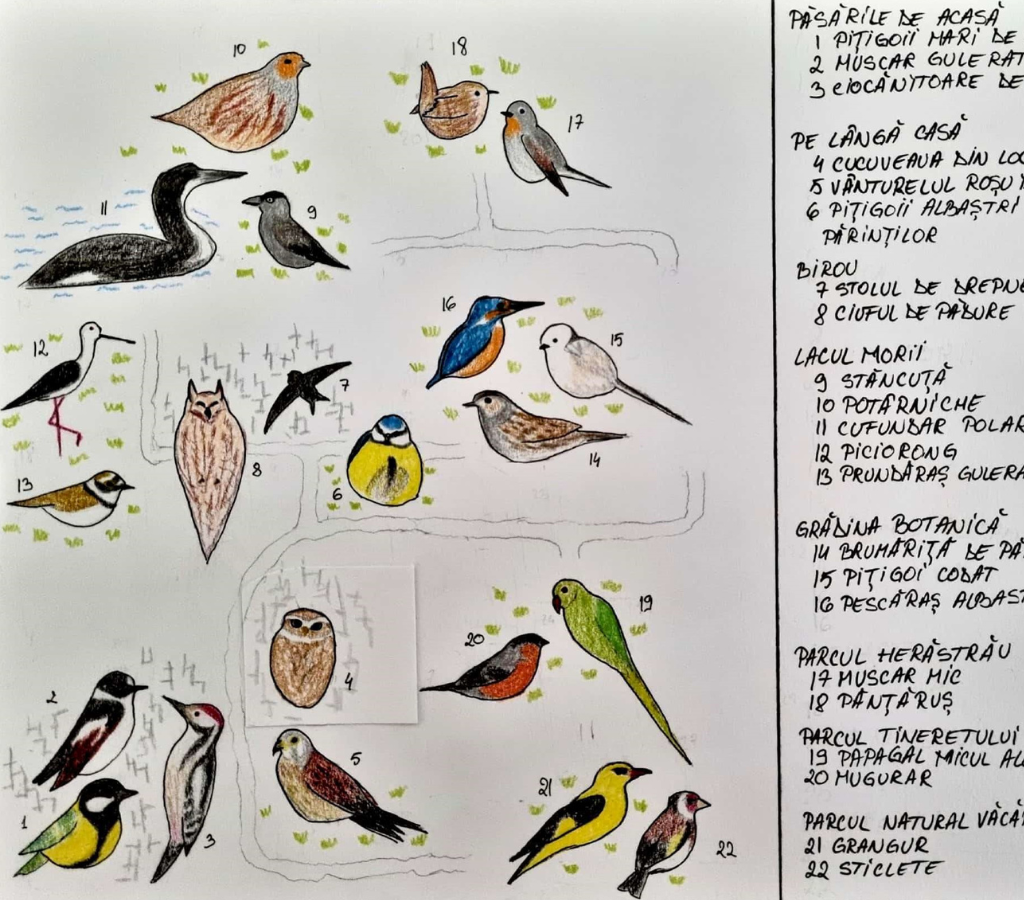 10
18
17
11
9
12
16
15
7
13
8
6
14
19
20
4
2
5
21
1
3
22
PĂSĂRILE DE ACASĂ
1 PIȚIGOII MARI DE
2 MUSCAR GULERAT
3 CIOCĂNITOARE DE
PE LÂNGĂ CASĂ
4 CUCUVEAUA DIN LOC
5 VÂNTURELUL ROȘU
6 PIȚIGOII ALBAȘTRI
PĂRINȚILOR
BIROU
7 STOLUL DE DREPNE
8 CIUFUL DE PĂDURE
LACUL MORII
9 STĂNCUȚĂ
10 POTÂRNICHE
11 CUFUNDAR POLAR
12 PICIORONG
13 PRUNDĂRAȘ GULERA
GRĂDINA BOTANICĂ
14 BRUMĂRIȚĂ DE PĂ
15 PIȚIGOI CODAT
16 PESCĂRAȘ ALBAST
PARCUL HERĂSTRĂU
17 MUSCAR MIC
18 PÂNȚĂRUȘ
PARCUL TINERETULUI
19 PAPAGAL MICUL AL
20 MUGURAR
PARCUL NATURAL VĂCĂ
21 GRANGUR
22 STICLETE